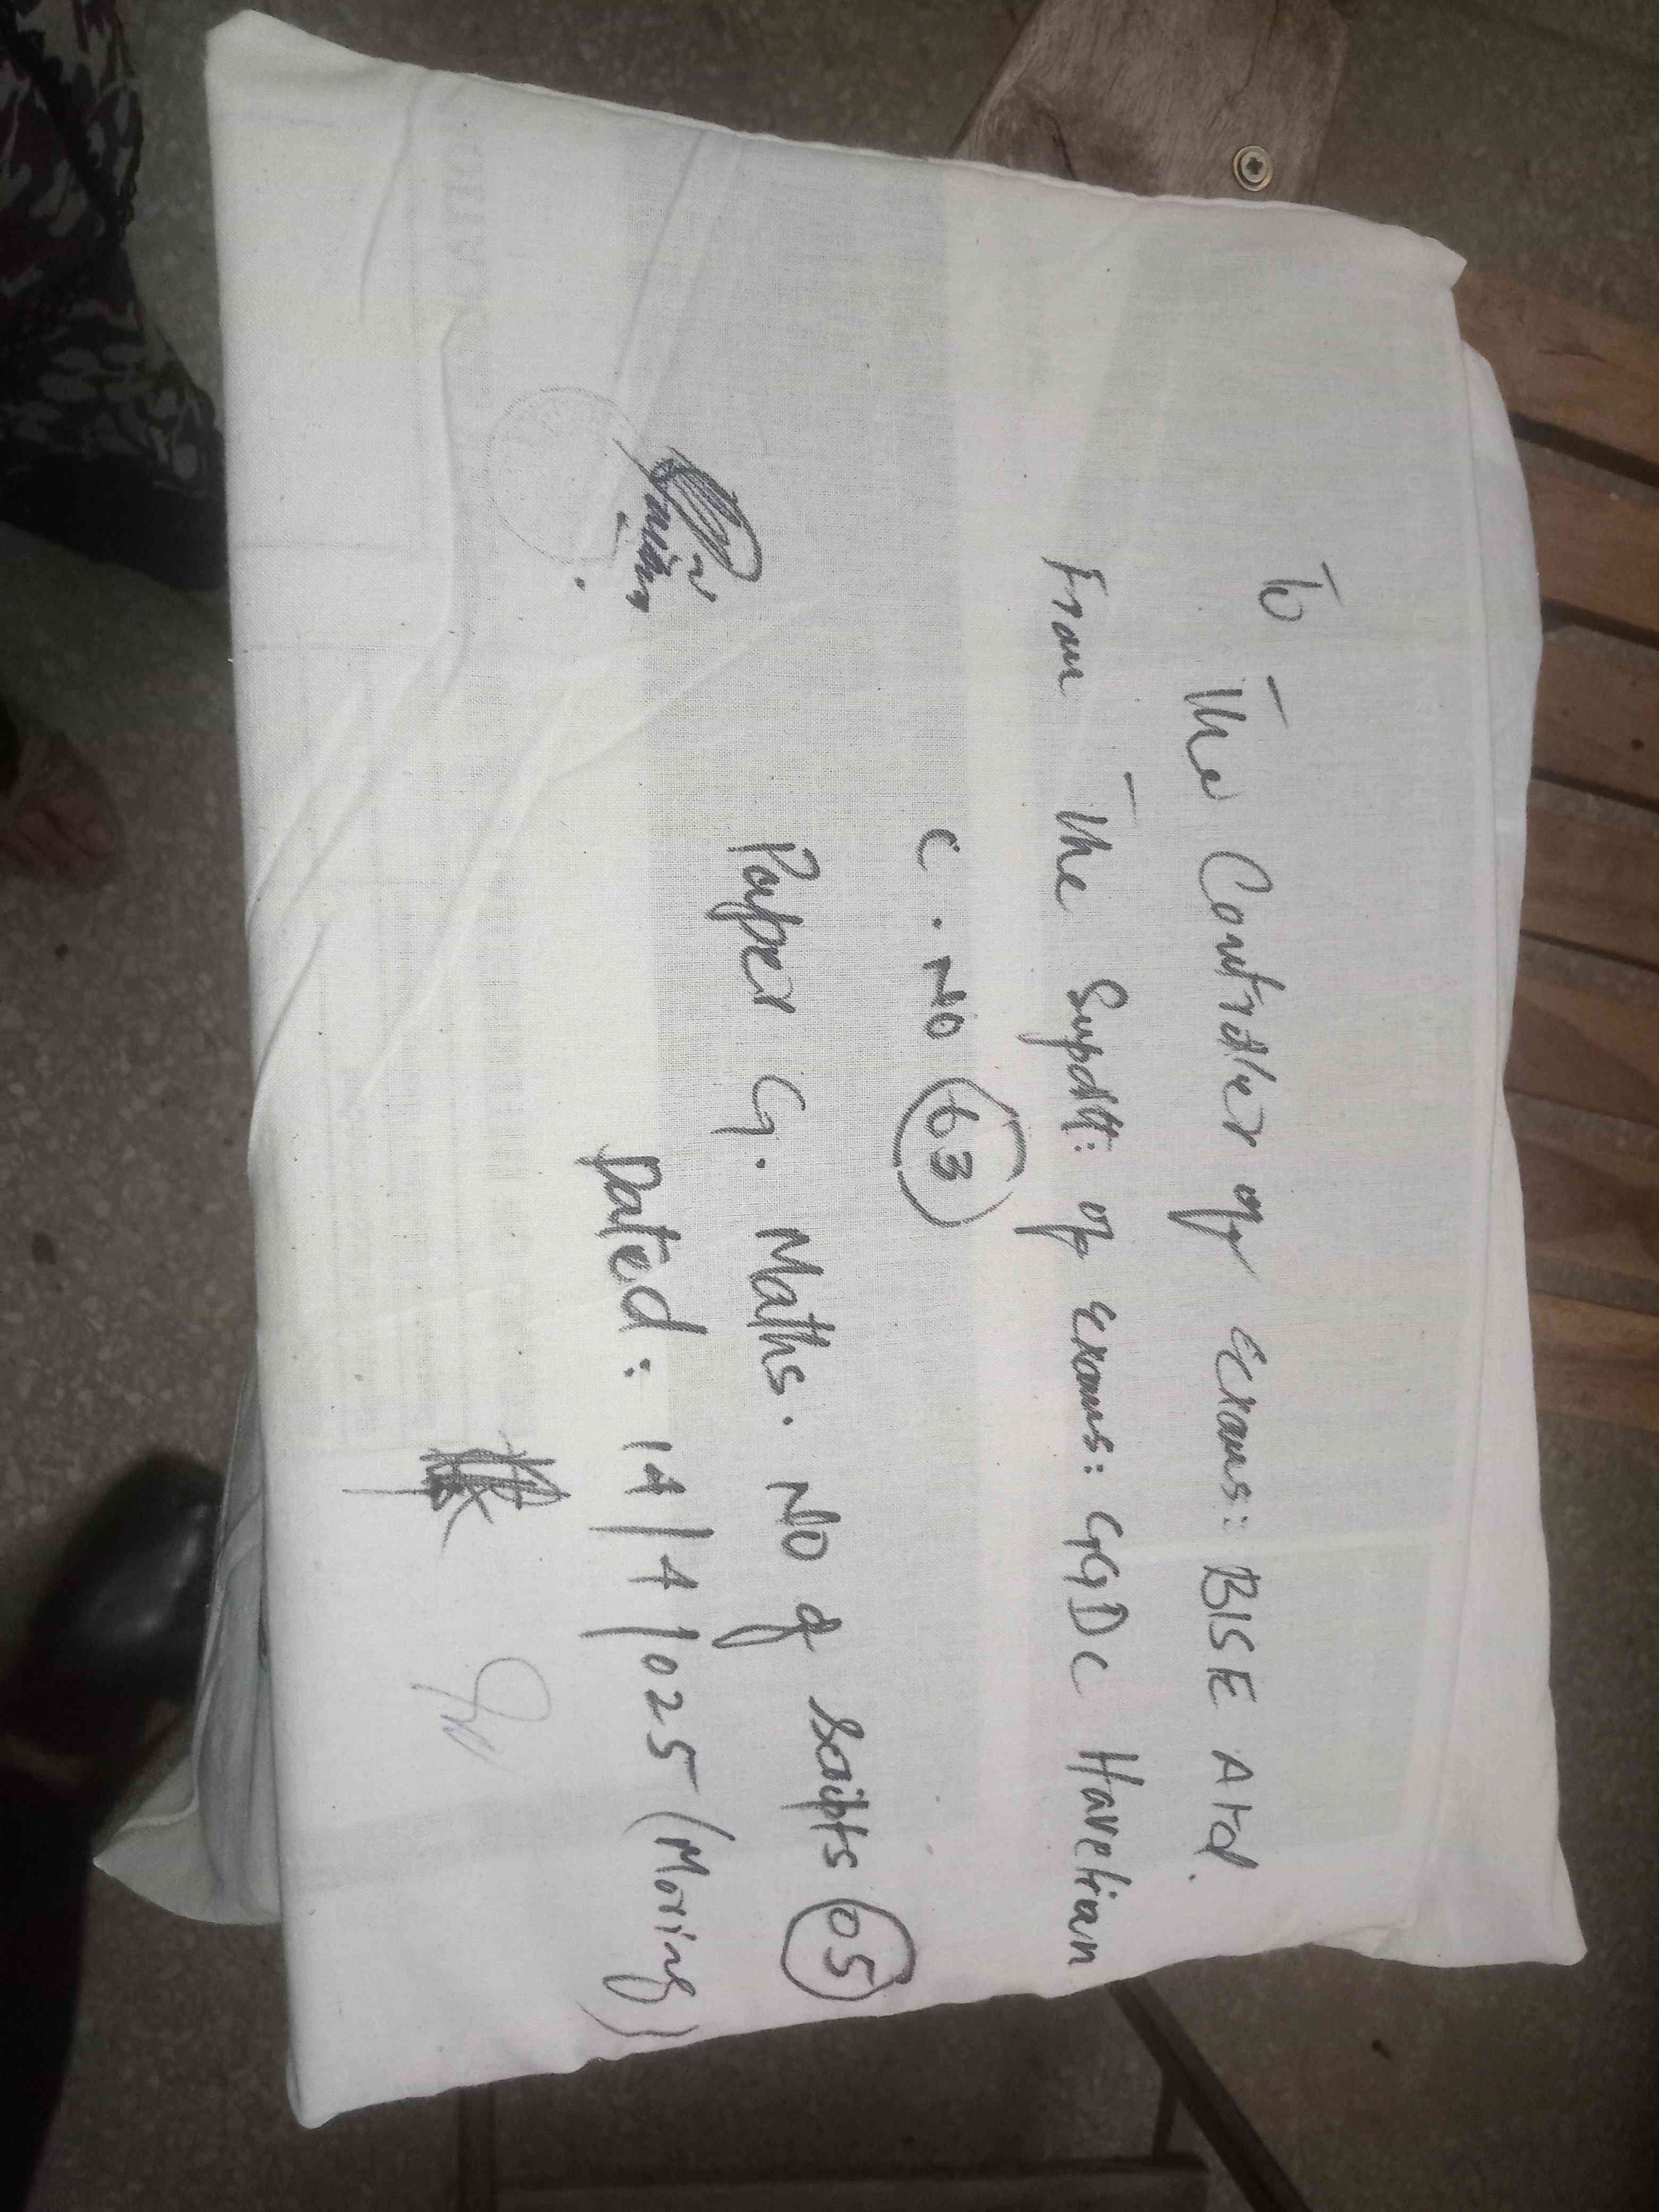 To
The Controller of exams: BISE Atd.
From The Supdtt: of exams: GGDC Havelian
C. No 63
Paper G. Maths. No of Scipts 05
Dated: 14/4/025 (Moring)